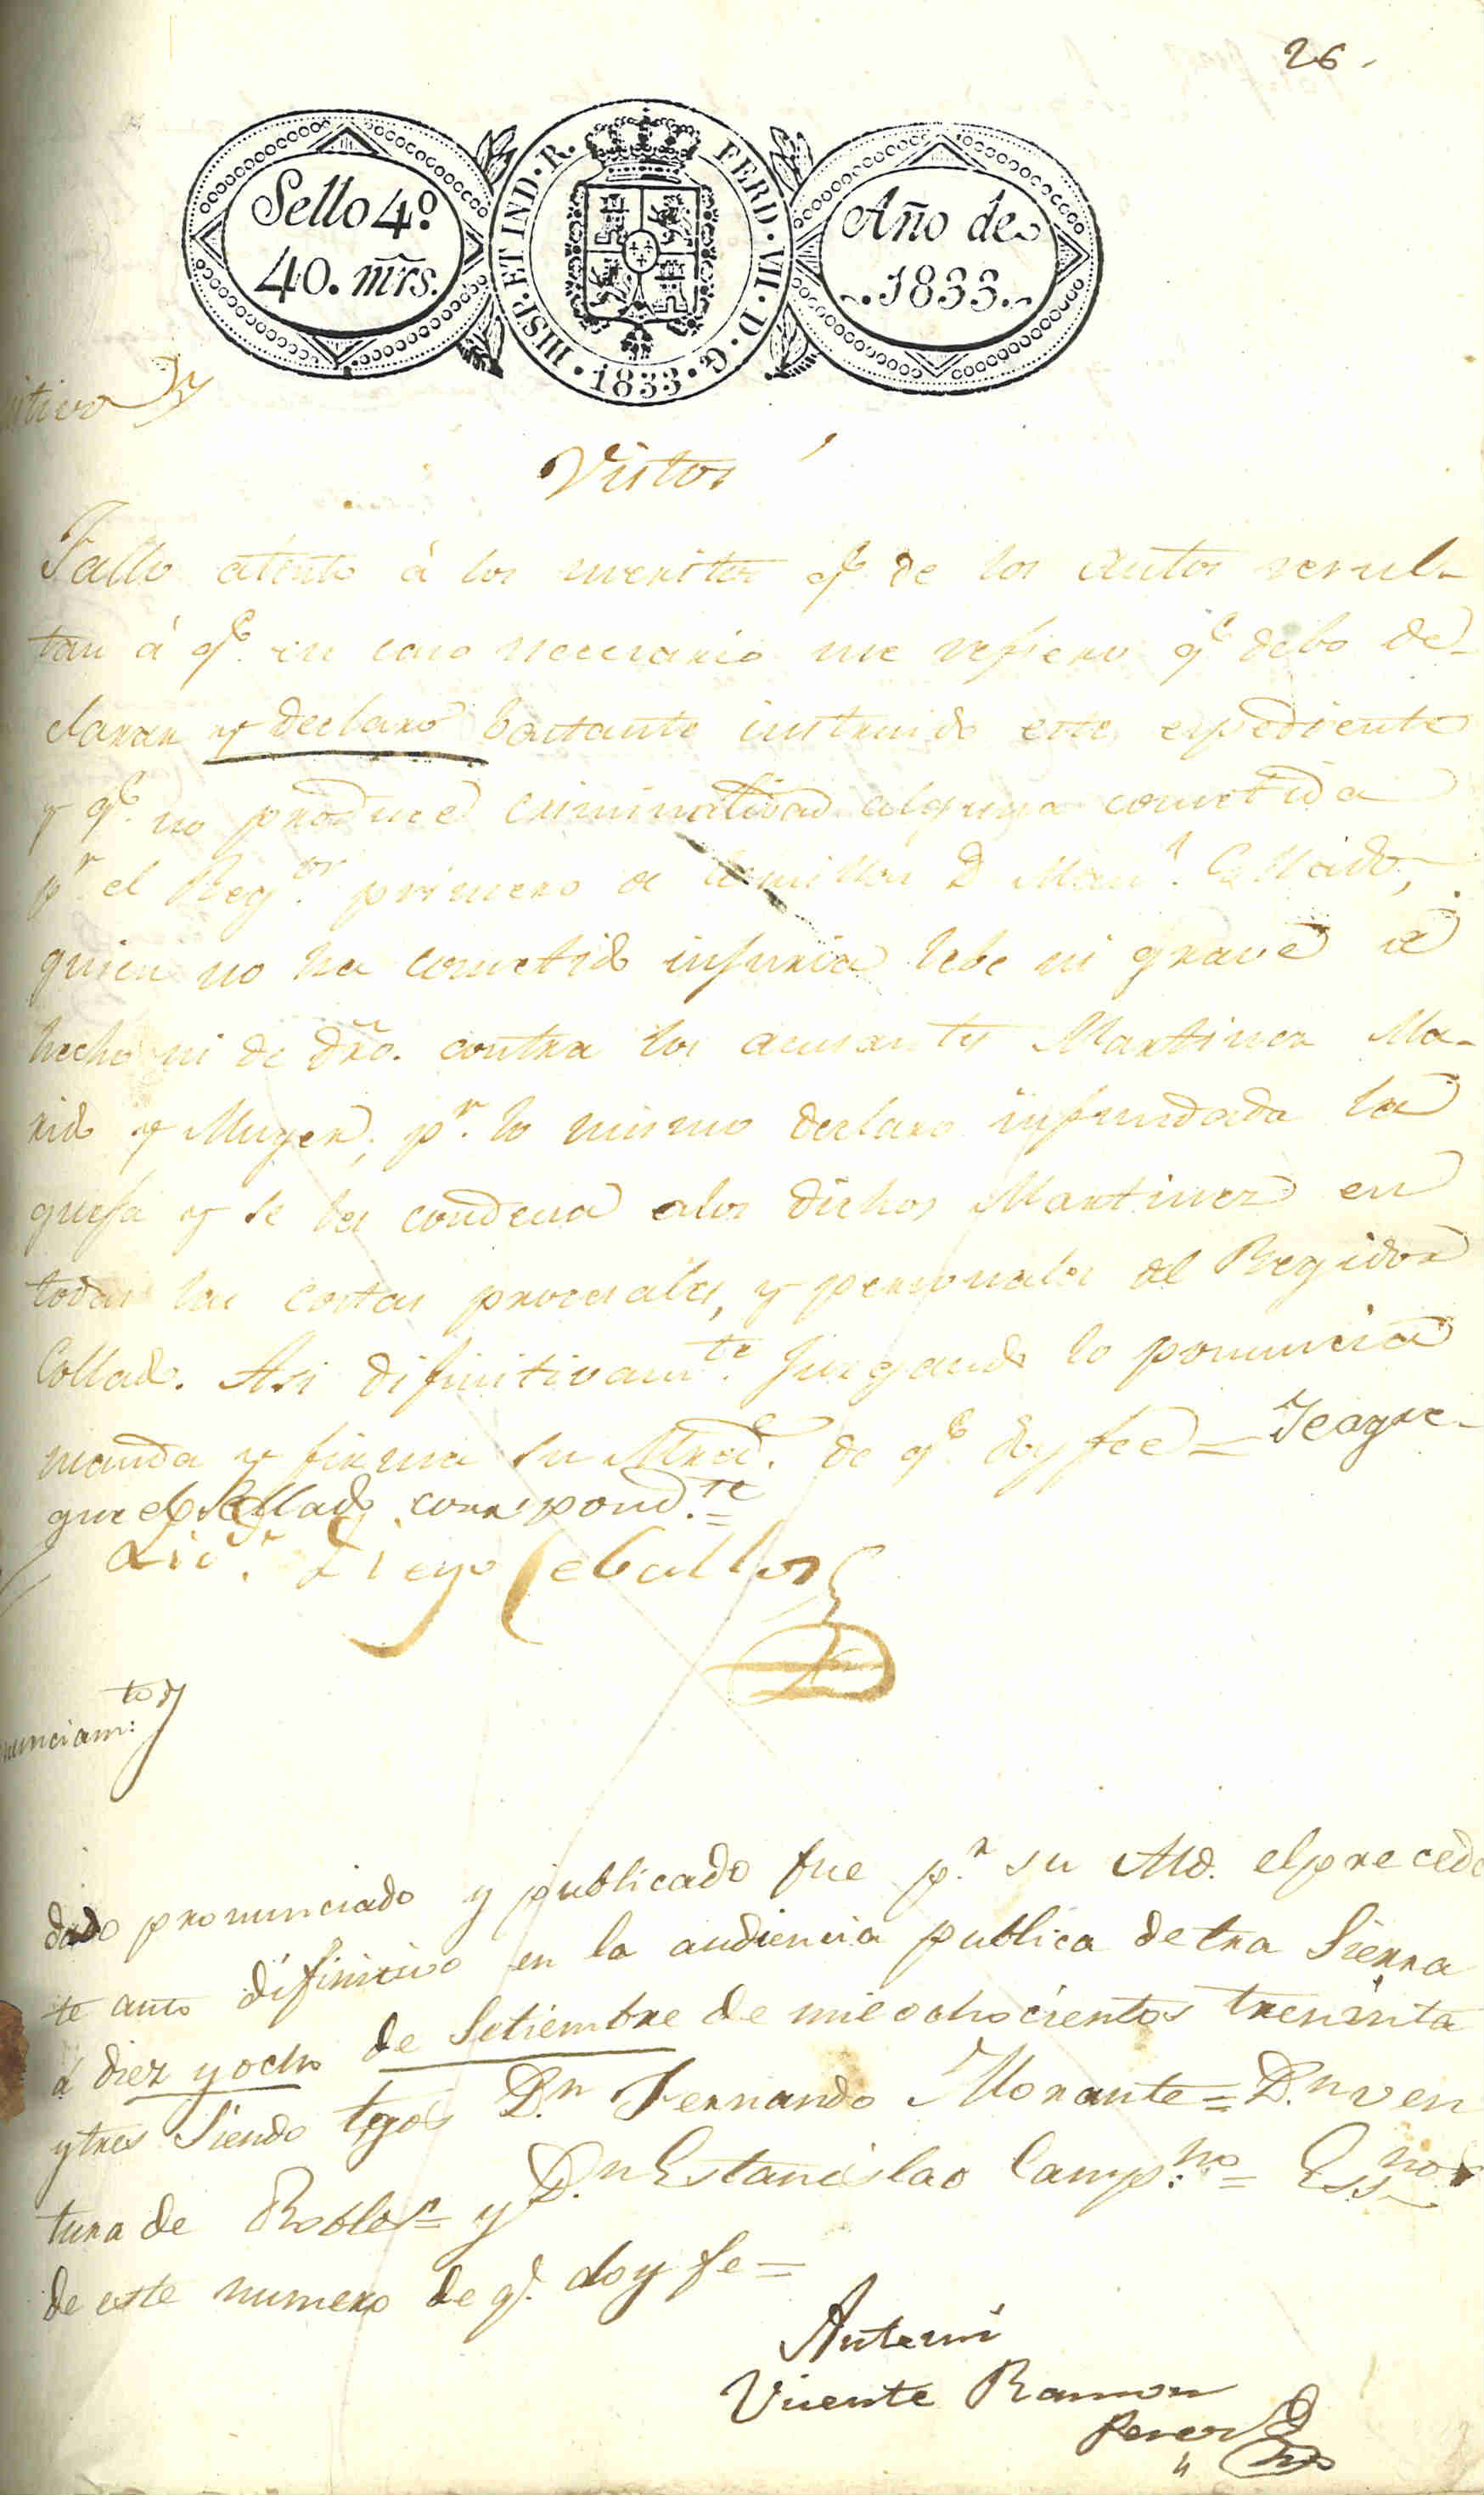 26.
Sello 4º
40. mrs.
HISP. ET IND. R. FERD. VII. D. G. 1833.
Año de
1833.
itivo
Vistos
Fallo atento á los meritos qe. de los Autos resul-
tan á qe. en caso necesario me refiero qe debo de-
clarar y declaro bastante instruido este espediente
y qe. no produce criminalidad alguna cometida
pr. el Regor. primero de D. Manl. Collado,
quien no ha cometido injuria lebe ni grave de
hecho ni de dro. contra los acusantes Martinez Ma-
rido y Muger, pr. lo mismo declaro infundada la
quefa y se les condena alos dichos Martinez en
todas las costas procesales, y personales del Regidor
Collado. Asi difinitivamte. Juzgando lo ponuncia
manda y firma su Mrcd. de qe. doy fee = Seagre-
gue el Sellado correspondte. =
Licdo. Diego Ceballos
nunciamto:
dado pronunciado y publicado fue pr. su Md. elpreceden
te auto difinitivo en la audiencia publica detra Sierra
á diez y ocho de Setiembre de mil ochocientos treninta
ytres Siendo tgos Dn. Fernando Morante = Dn. ven
tura de Robles = y Dn. Estanislao Campno. = Essnos
de este numero de q. doy fe =
Antemi
Vicente Ramon
Perez